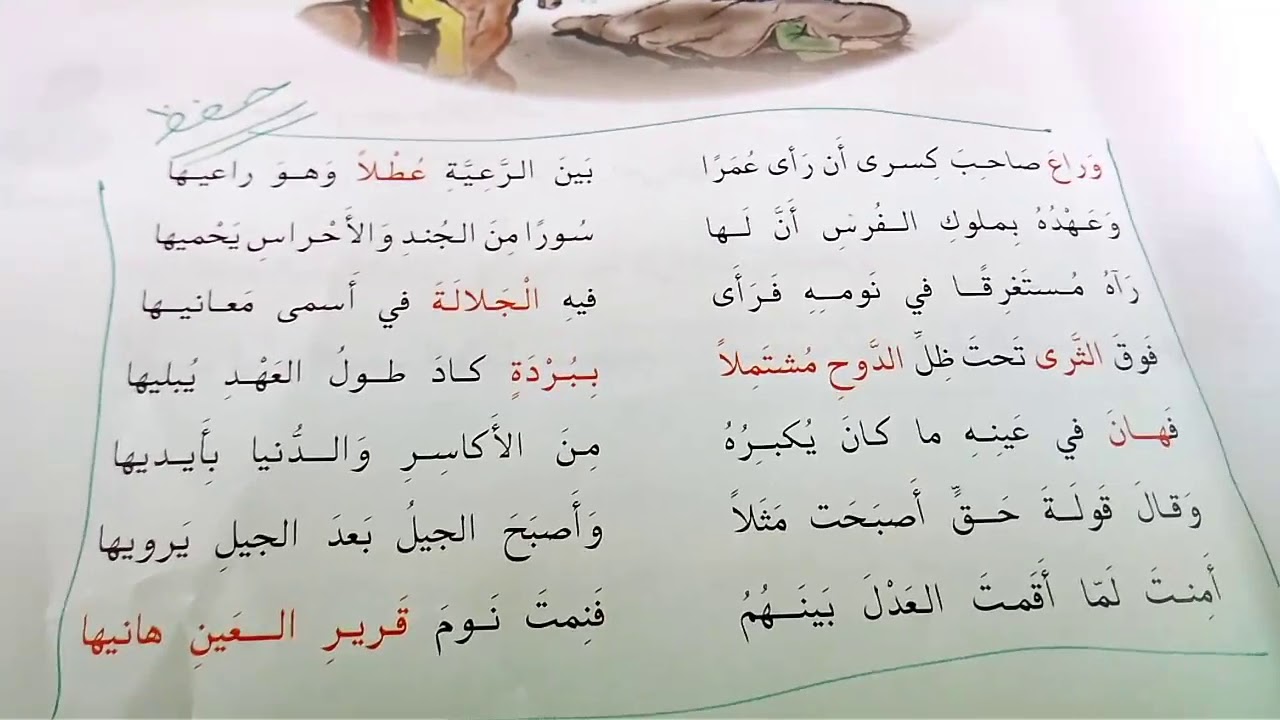 حفظ
وَراعَ صاحِبَ كِسرى أَن رَأى عُمَرًا بَينَ الرَّعِيَّةِ عُطْلاً وَهوَ راعيها
وَعَهْدُهُ بِملوكِ الفُرْسِ أَنَّ لَها سُورًا مِنَ الجُندِ وَالأَحْراسِ يَحْميها
رَآهُ مُستَغرِقًا في نَومِهِ فَرَأَى فيهِ الْجَلالَةَ في أَسمى مَعانيها
فَوقَ الثَّرى تَحتَ ظِلِّ الدَّوحِ مُشتَمِلاً بِبُرْدَةٍ كادَ طولُ العَهْدِ يُبليها
فَهانَ في عَينِهِ ما كانَ يُكبِرُهُ مِنَ الأَكاسِرِ وَالدُّنيا بِأَيديها
وَقالَ قَولَةَ حَقٍّ أَصبَحَت مَثَلاً وَأَصبَحَ الجيلُ بَعدَ الجيلِ يَرويها
أَمِنتَ لَمّا أَقَمتَ العَدْلَ بَينَهُمُ فَنِمتَ نَومَ قَريرِ العَينِ هانيها